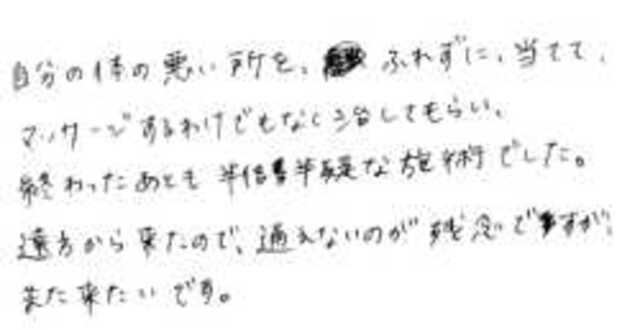 自分の体の悪い所を、ふれずに、当てて、
マッサージするわけでもなく治してもらい、
終わったあとも半信半疑な施術でした。
遠方から来たので、通えないのが残念ですが、
また来たいです。